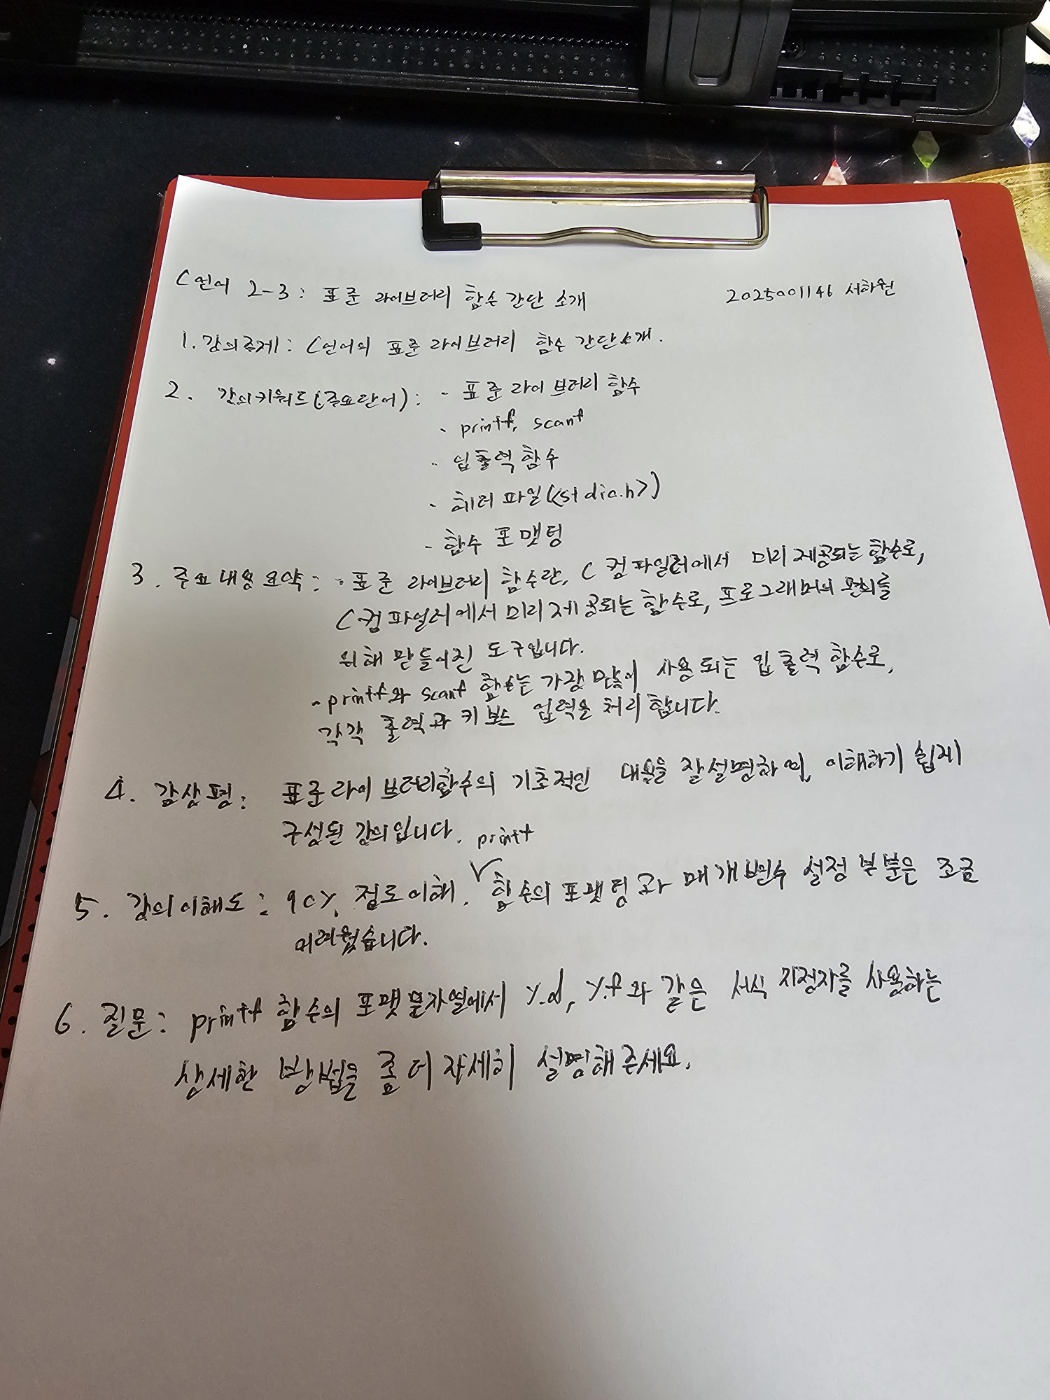 C언어 2-3: 표준 라이브러리 함수 간단 소개 2025001146 서하원
1. 강의주제: C언어의 표준 라이브러리 함수 간단소개.
2. 강의키워드(주요단어): - 표준 라이브러리 함수
- printf, scanf
- 입출력 함수
- 헤더 파일(<stdio.h>)
- 함수 포맷팅
3. 주요내용요약: - 표준 라이브러리 함수란, C 컴파일러에서 미리 제공되는 함수로,
C컴파일러에서 미리 제공되는 함수로, 프로그래머의 편의를
위해 만들어진 도구입니다.
- printf와 scanf 함수는 가장 많이 사용되는 입출력 함수로,
각각 출력과 키보드 입력을 처리합니다.
4. 감상평: 표준라이브러리함수의 기초적인 내용을 잘설명하며, 이해하기 쉽게
구성된 강의입니다.
5. 강의이해도: 90% 정도이해. printf 함수의 포맷팅과 매개변수 설정 부분은 조금
어려웠습니다.
6. 질문: printf 함수의 포맷문자열에서 %d, %f와 같은 서식 지정자를 사용하는
상세한 방법을 좀 더 자세히 설명해주세요.